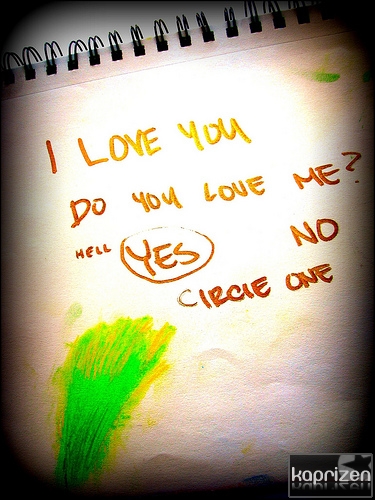 I LOVE YOU
DO YOU LOVE ME?
HELL YES NO
CIRCLE ONE
kaprizen